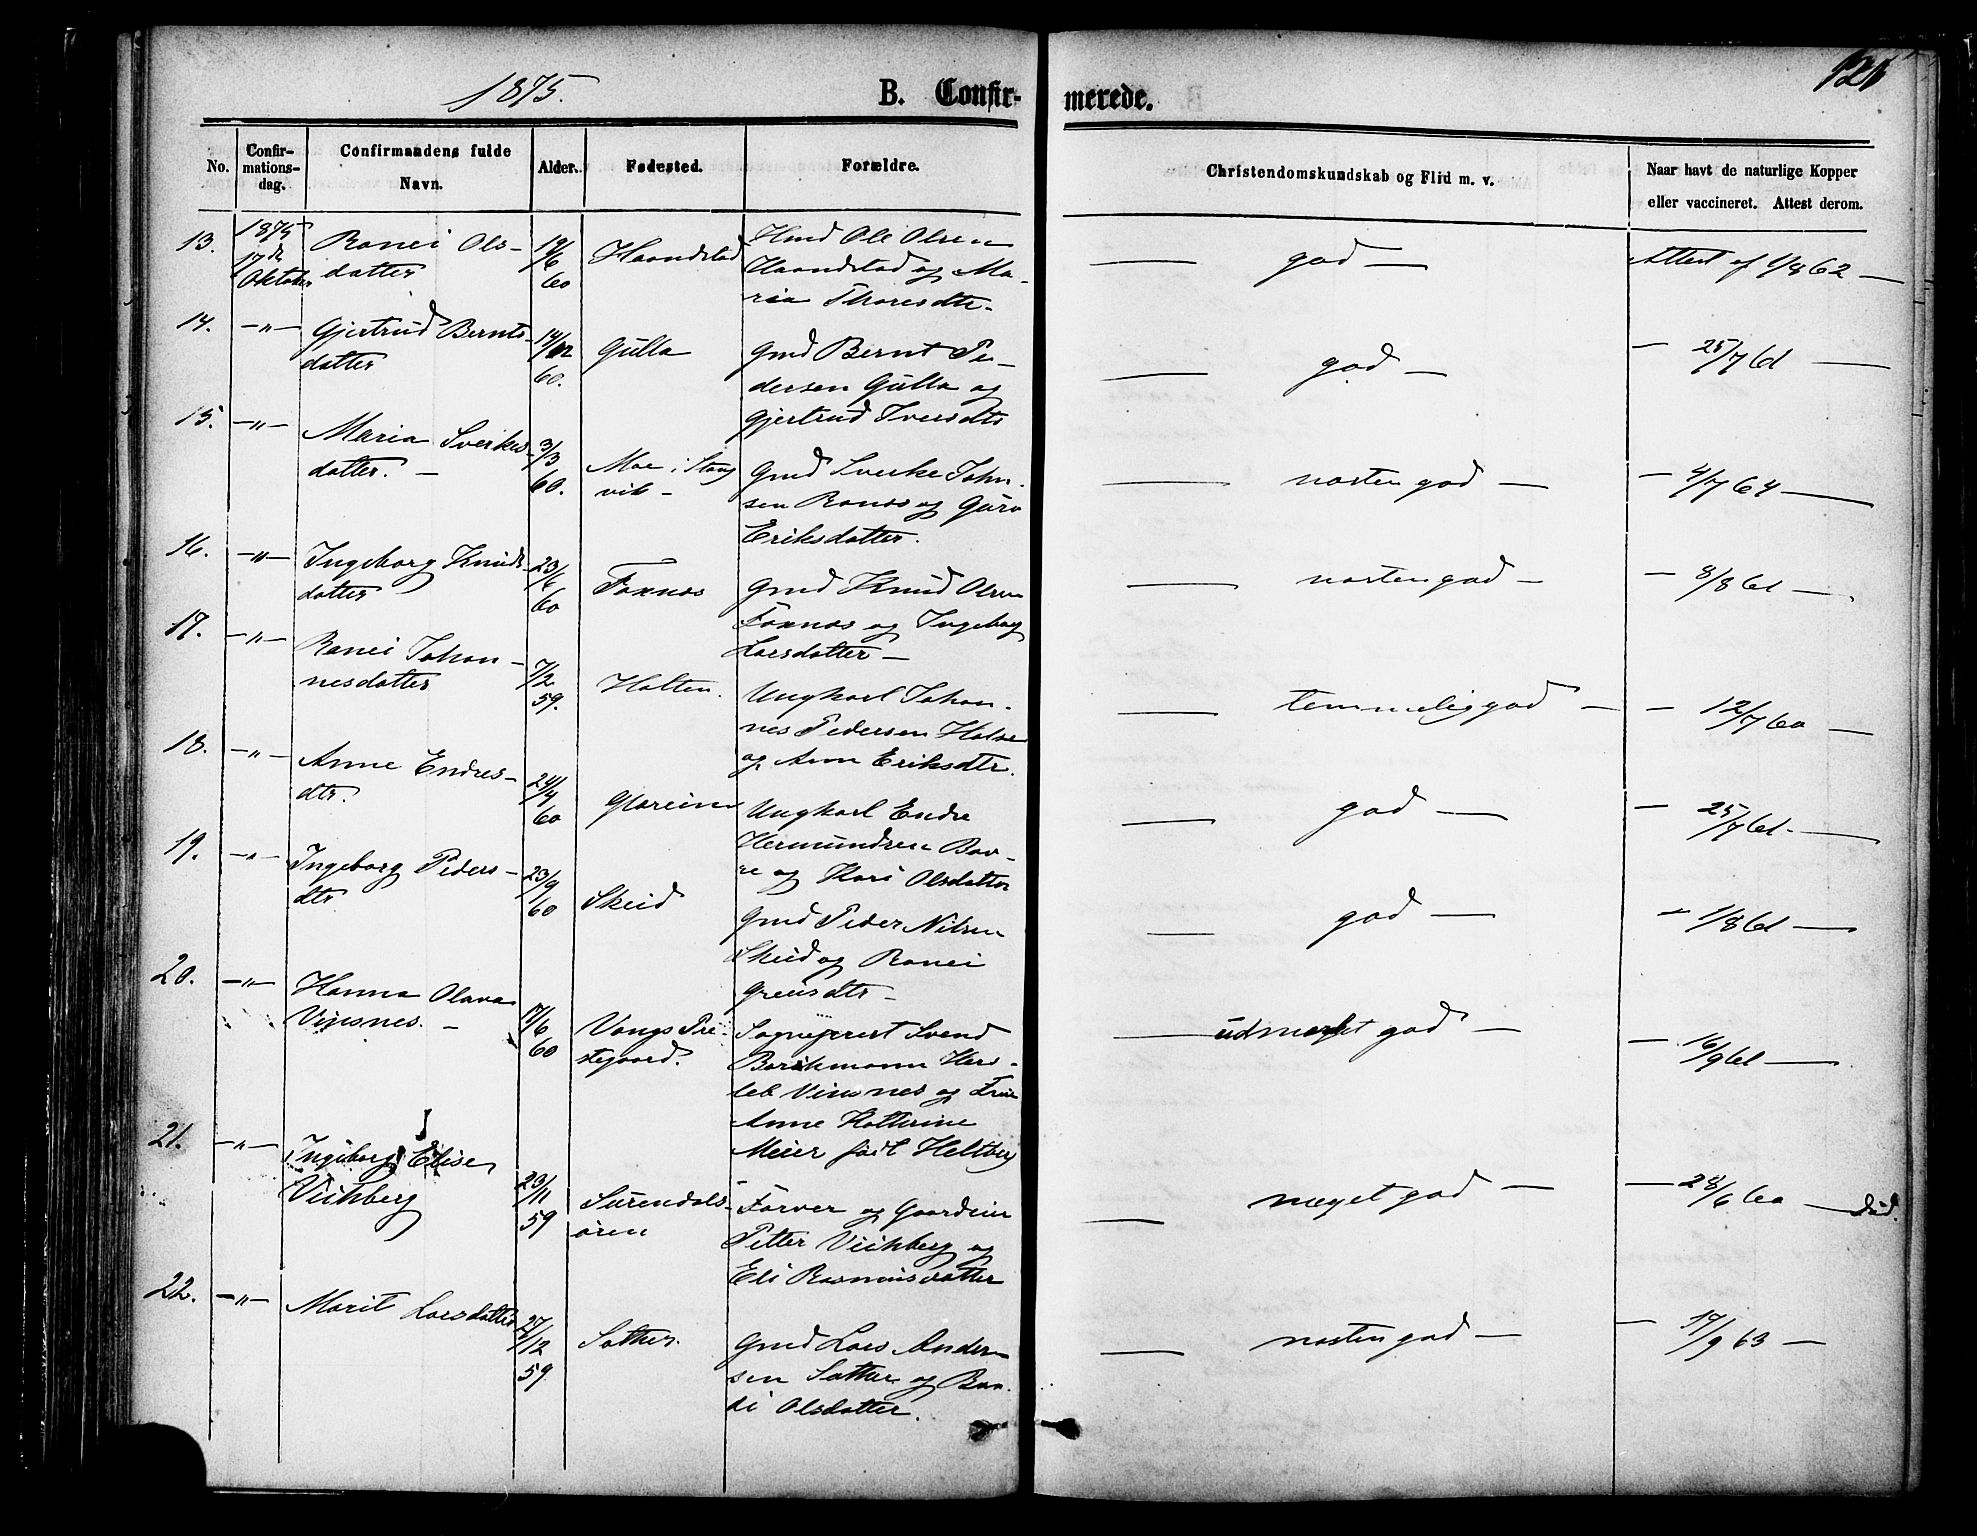 1875.
B. Confir-
merede.
No.
Confir-
mations-
dag.
Confirmandens fulde
Navn.
Alder.
Fødested.
Forældre.
Christendomskundskab og Flid m. v.
Naar havt de naturlige Kopper
eller vaccineret. Attest derom.
13.
1875
17de
Oktober
Ranei Ols-
datter
19/6
60
Haandstad
Hmd Ole Olsen
Haandstad og Ma-
ria Thoresdtr.
god
Attest af 1/8 62
14.
—"—
Gjertrud Bernts-
datter
14/12
60.
Gulla
Gmd Bernt Pe-
dersen Gulla og
Gjertrud Iversdtr
god
25/7 61
15.
—"—
Maria Sverkes-
datter.
3/3
60.
Moe i Stang
vik
Gmd Sverke John-
sen Ranes og Guro
Eriksdatter.
næsten god
4/7 64
16.
—"—
Ingeborg Knuds
datter
23/6
60
Foxnæs
Gmd Knud Olsen
Foxnæs og Ingeborg
Larsdatter
næsten god
8/8 61
17.
—"—
Ranei Johan-
nesdatter
7/2
59.
Holten.
Ungkarl Johan-
nes Pedersen Holten
og Ane Eriksdtr.
temmelig god
12/7 60
18.
—"—
Anne Endres-
dtr.
24/4
60
Glæreim
Ungkarl Endre
Hermundsen Bæv-
re og Kari Olsdatter
god
25/7 61
19.
—"—
Ingeborg Peders-
dtr
23/9
60
Skeid
Gmd Peder Nilsen
Skeid og Ranei
Greusdtr
god
1/8 61
20.
—"—
Hanna Olava
Vinsnes.
17/6
60
Vangs Præ
stegaard.
Sogneprest Svend
Borchmann Hers-
leb Vinsnes og Frue
Anne Kathrine
Meier født Heltberg
udmærket god
16/9 61
21.
—"—
Ingeborg Elise
Vichberg
23/11
59
Surendals-
øren
Farver og Gaardeier
Petter Vichberg og
Eli Rasmusdatter
meget god
28/6 60
død.
22.
—"—
Marit Larsdatter
27/12
59
Sæther.
Gmd Lars Ander-
sen Sæther og Ran-
di Olsdatter.
næsten god
17/9 63